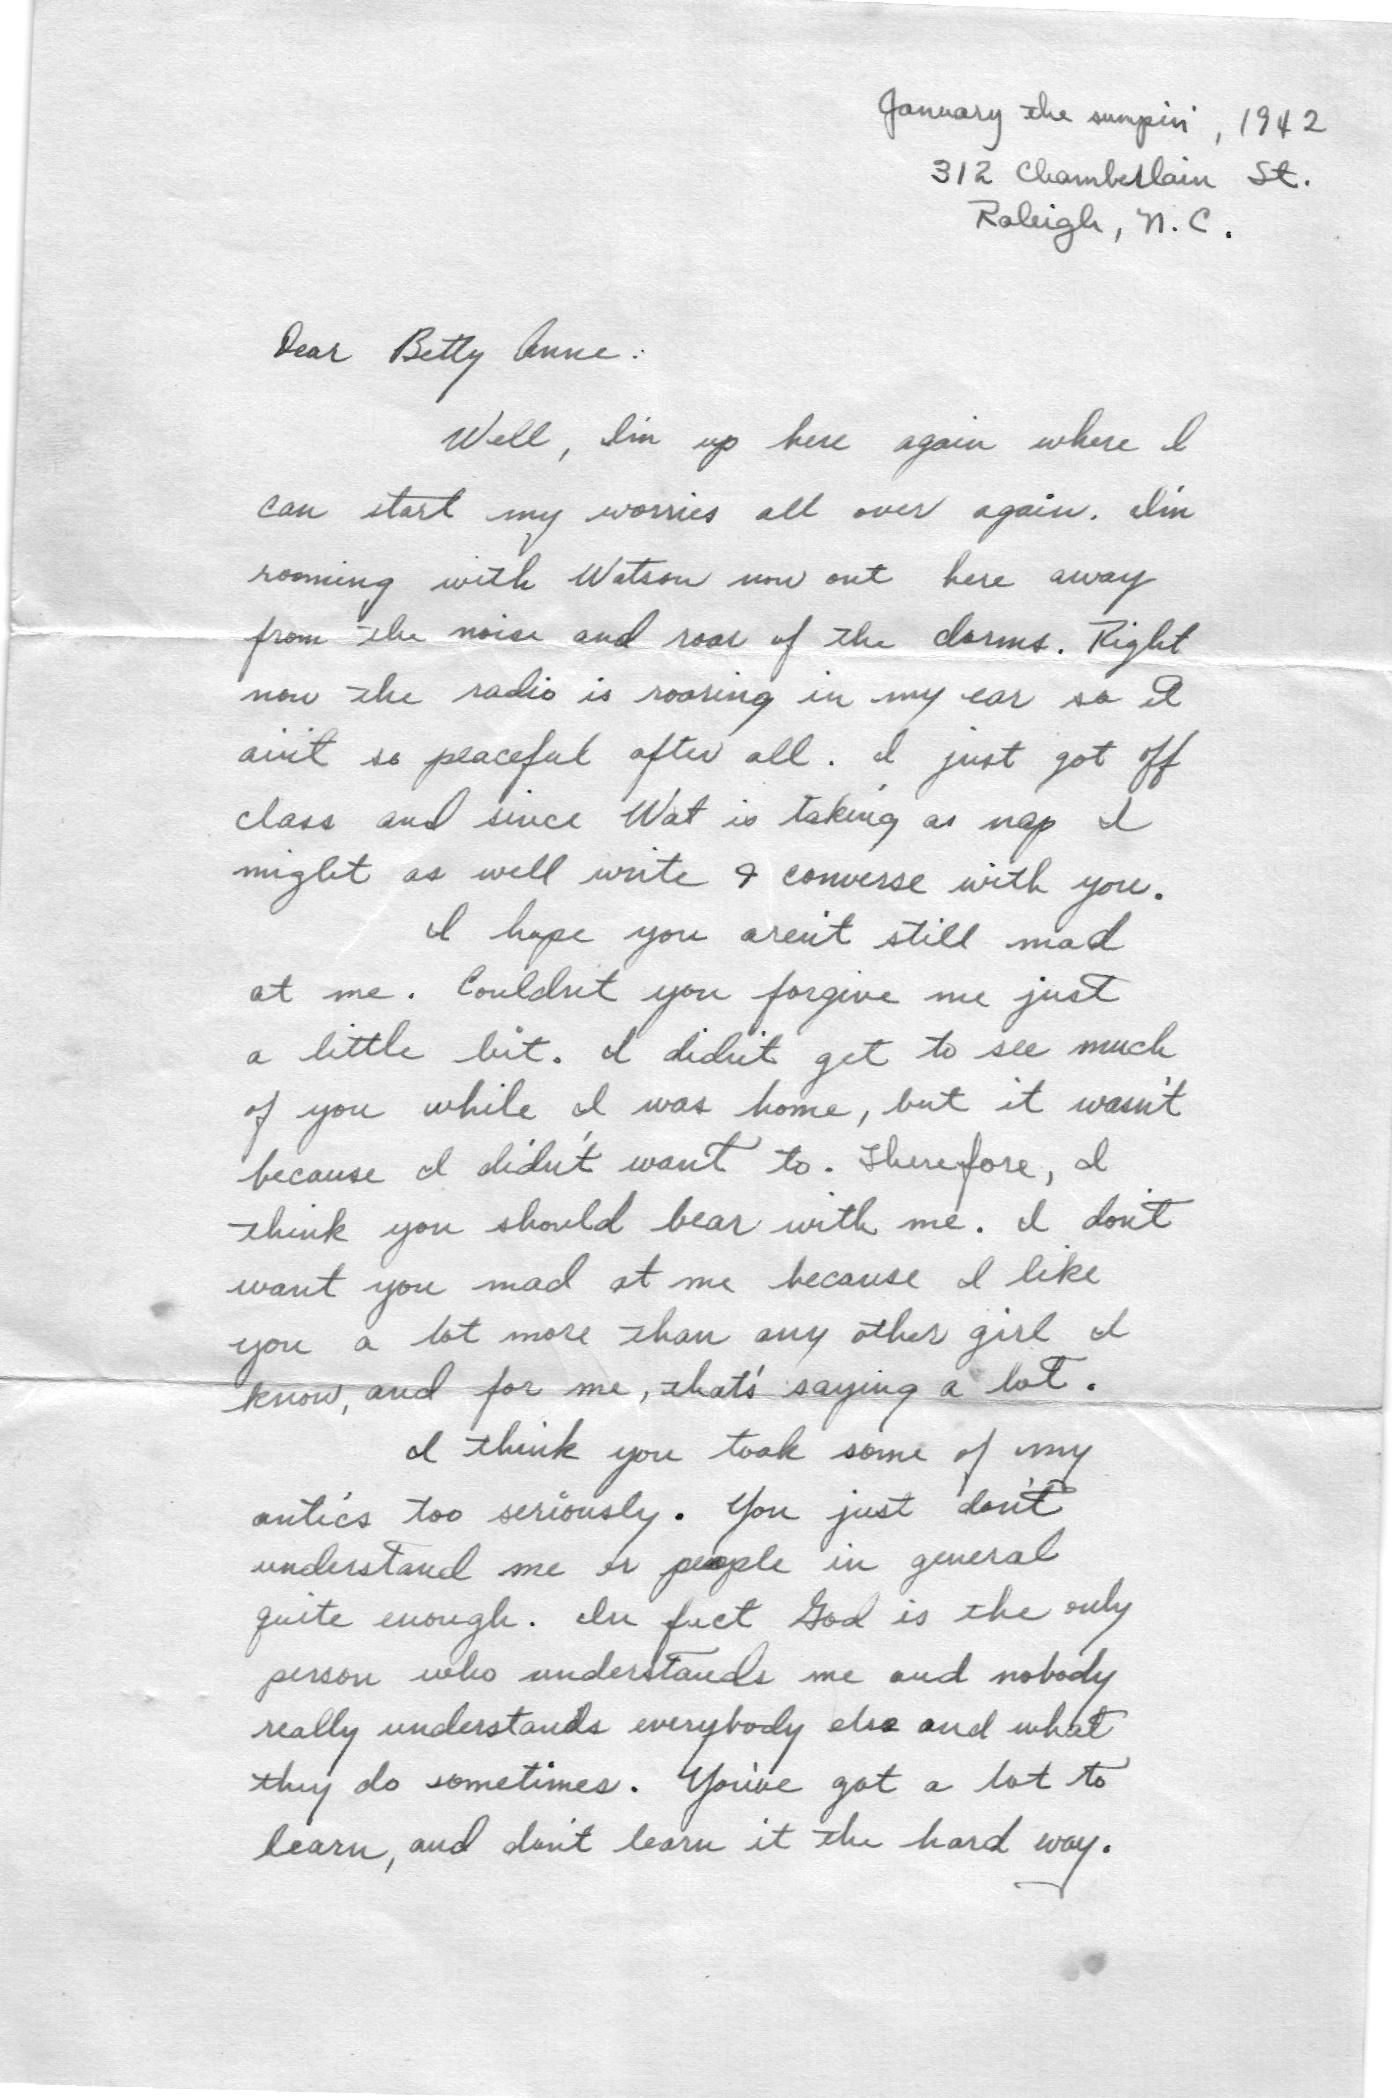 January the sumpin', 1942
312 Chamberlain St.
Raleigh, N.C.
Dear Betty Anne:
Well, I'm up here again where I
can start my worries all over again. I'm
rooming with Watson now out here away
from the noise and roar of the dorms. Right
now the radio is roaring in my ear so it
ain't so peaceful after all. I just got off
class and since Wat is taking as nap I
might as well write & converse with you.
I hope you aren't still mad
at me. Couldn't you forgive me just
a little bit. I didn't get to see much
of you while I was home, but it wasn't
because I didn't want to. Therefore, I
think you should bear with me. I don't
want you mad at me because I like
you a lot more than any other girl I
know, and for me, that's saying a lot.
I think you took some of my
antics too seriously. You just don't
understand me or people in general
quite enough. In fact God is the only
person who understands me and nobody
really understands everybody else and what
they do sometimes. You've got a lot to
learn, and don't learn it the hard way.